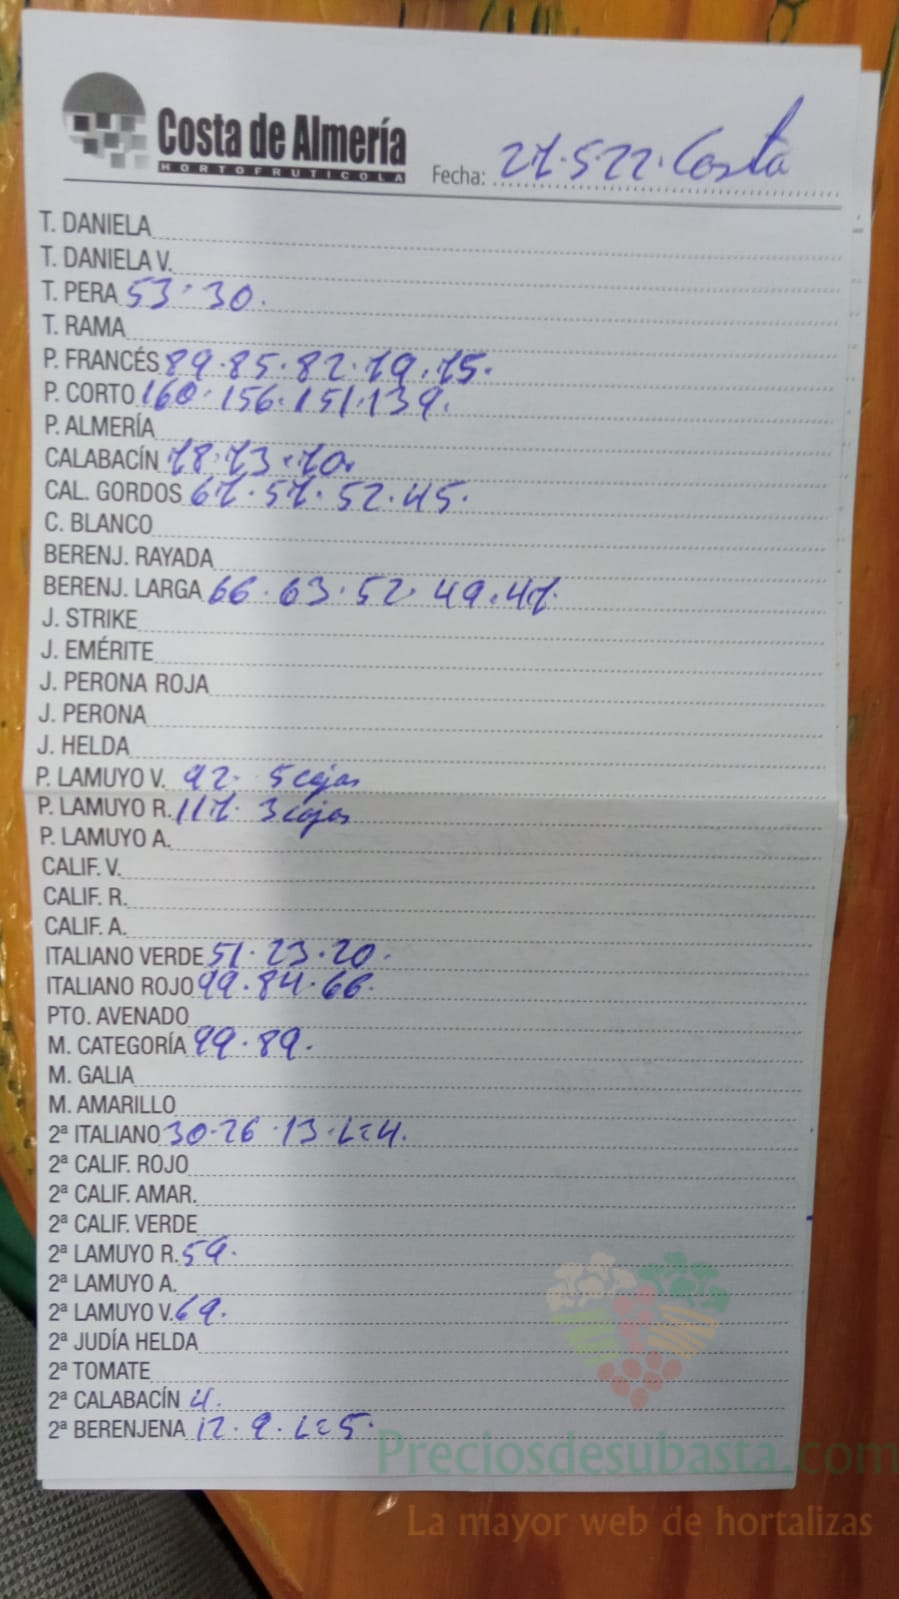 Costa de Almería
HORTOFRUTICOLA
Fecha: 27.5.22. Costa
T. DANIELA
T. DANIELA V.
T. PERA 53.30.
T. RAMA
P. FRANCÉS 89.85.82.79.75.
P. CORTO 160.156.151.139.
P. ALMERÍA
CALABACÍN 78.73.70.
CAL. GORDOS 67.57.52.45.
C. BLANCO
BERENJ. RAYADA
BERENJ. LARGA 66.63.52.49.47.
J. STRIKE
J. EMÉRITE
J. PERONA ROJA
J. PERONA
J. HELDA
P. LAMUYO V. 92. 5 cajas
P. LAMUYO R. 117. 3 cajas
P. LAMUYO A.
CALIF. V.
CALIF. R.
CALIF. A.
ITALIANO VERDE 51.23.20.
ITALIANO ROJO 99.84.66.
PTO. AVENADO
M. CATEGORÍA 99.89.
M. GALIA
M. AMARILLO
2ª ITALIANO 30.26.13.L=4.
2ª CALIF. ROJO
2ª CALIF. AMAR.
2ª CALIF. VERDE
2ª LAMUYO R. 59.
2ª LAMUYO A.
2ª LAMUYO V. 69.
2ª JUDÍA HELDA
2ª TOMATE
2ª CALABACÍN 4.
2ª BERENJENA 12.9.L=5.
Preciosdesubasta.com
La mayor web de hortalizas